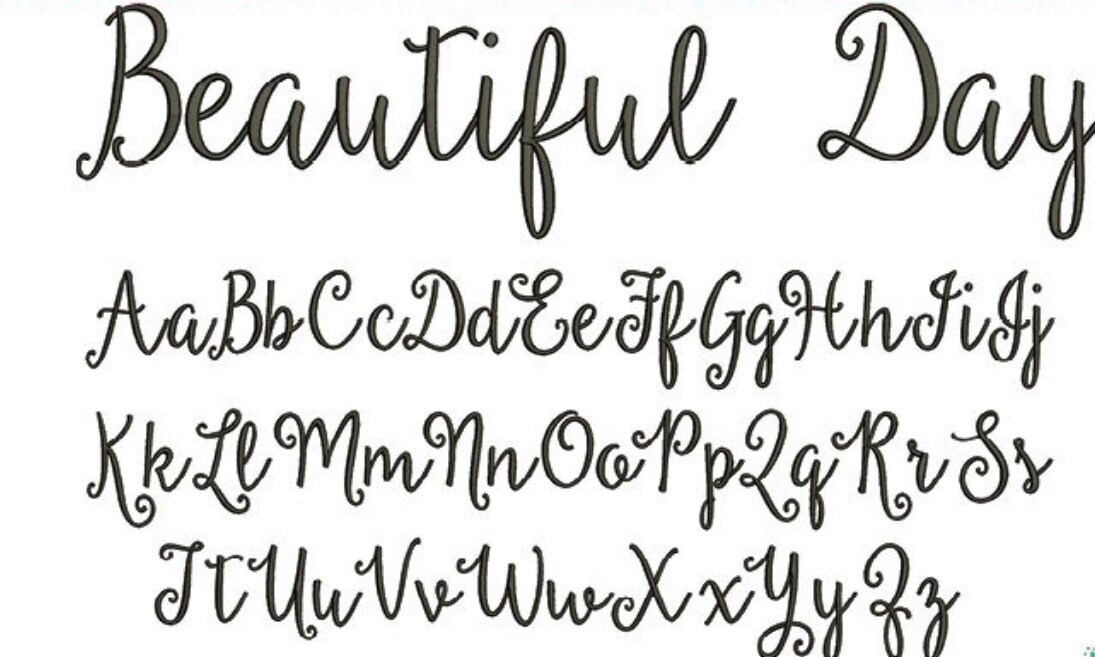 Beautiful Day
AaBbCcDdEeFfGgHhIiJj
KkLlMmNnOoPpQqRrSs
TtUuVvWwXxYyZz